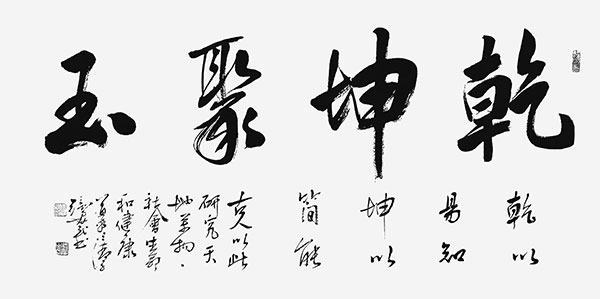 乾坤聚玉
乾以
易知
坤以
簡能
以此
研究天
地萬物、
社會生命
和健康